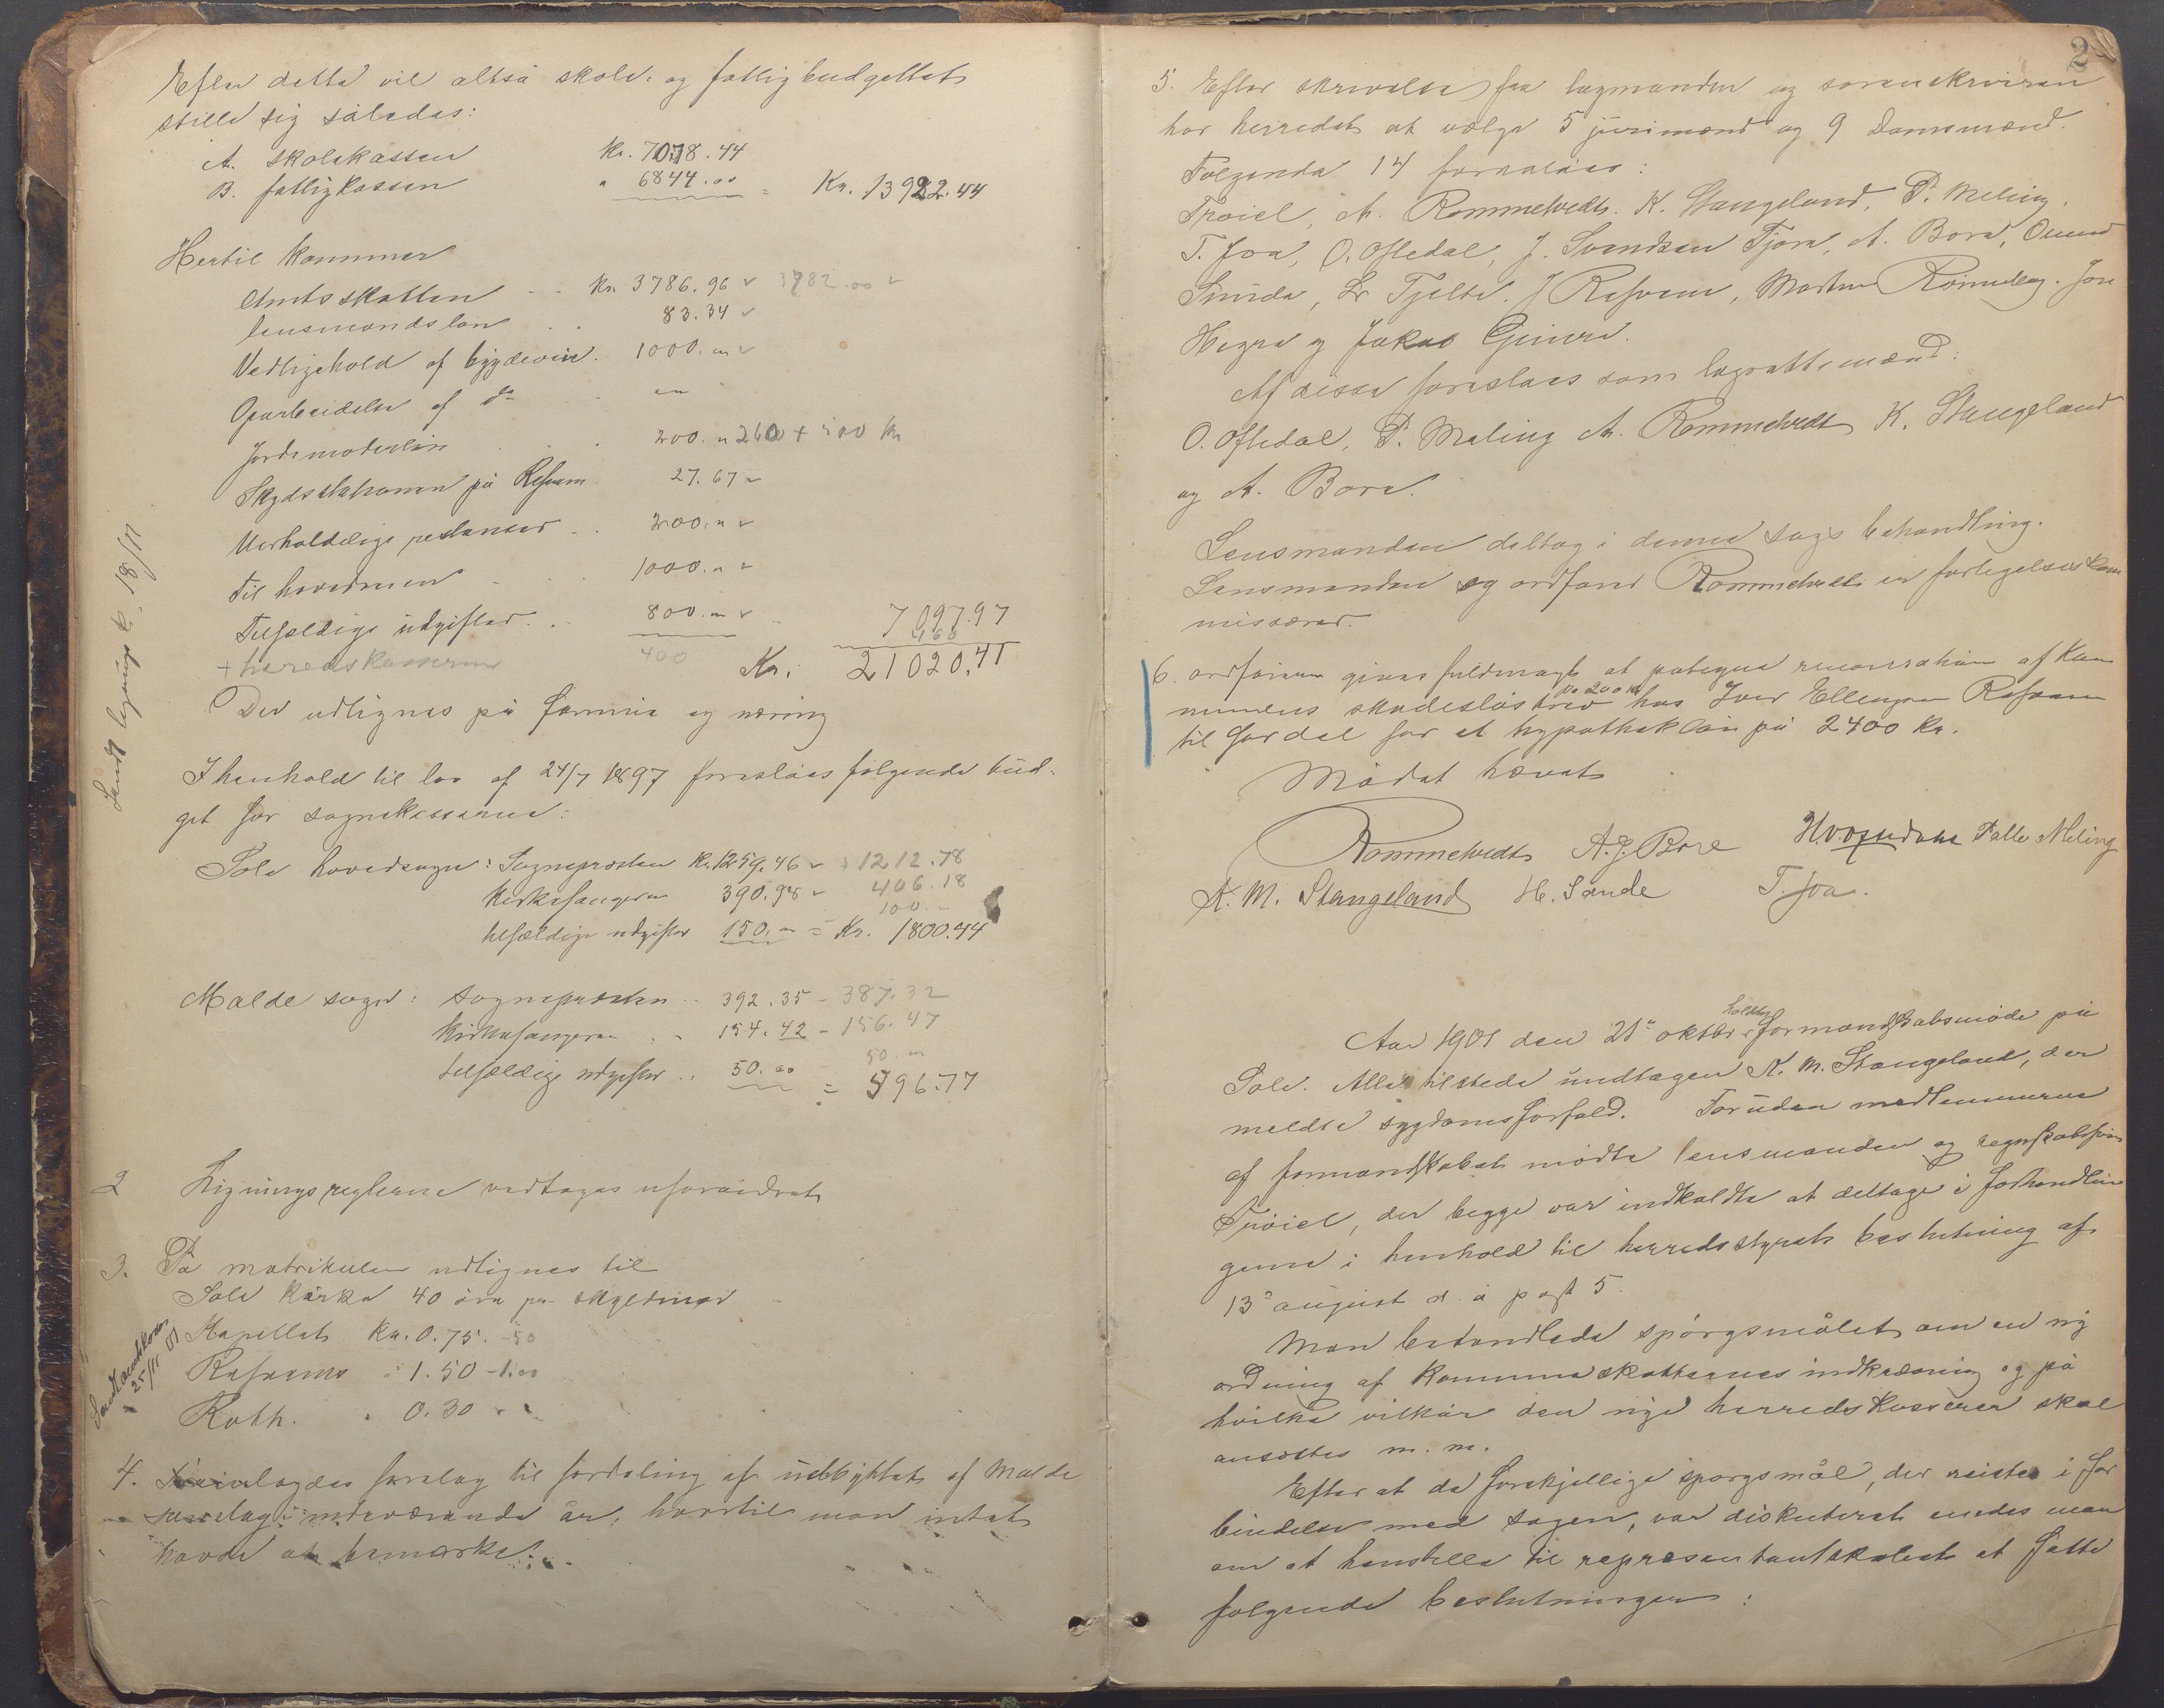 Efter dette vil altså skole- og fattigbudgettet
stille sig således:
A. skolekassen Kr. 7078.44
B. fattigkassen " 6844.00 = Kr. 13922.44
Hertil kommer
Amtsskatten Kr. 3786.96 3782.00
lensmandsløn 83.34
Vedligehold af bygdeveie 1000.
Oparbeidelse af do
Jordemoderløn 200. 260 + 500 Kr
Skydsstationen på Refsnes 27.67
Uerholdelige restanser 200.
Til hovedveien 1000.
Tilfældige udgifter 800. 7097.97
+ heredskasseren 400 Kr. 21020.41
Der udlignes på formue og næring
Sendt lignings k. 18/11
I henhold til lov af 24/7 1897 foreslåes følgende bud-
get for sognekasserne:
Sole hovedsogn: Sognepresten Kr. 1259.46 + 1212.78
Kirkesangeren 390.98 406.18
100.
tilfældige udgifter 150. = Kr. 1800.44
Malde sogn: Sognepresten 392.35 - 387.32
Kirkesangeren 154.42 - 156.47
50.
tilfældige udgifter 50.00 = 596.77
2 Ligningsreglerne vedtages uforandret
3. På matrikulen udlignes til
Sole kirke 40 øre pr skyldmark
Kapellet Kr. 0.75. - 50
Refsnes " 1.50 - 1.00
Roth. " 0.30
25/11 01
4. forelag til fordeling af udbyttet af Malde
i indeværende år, hvortil man intet
havde at bemærke.
2
5. Efter skrivelse fra lagmanden og sorenskriveren
har herredet at vælge 5 jurimænd og 9 Domsmænd.
Følgende 14 foreslåes:
Trøiel, A. Rommetvedt. K. Stangeland, P. Meling,
T. Joa, O. Oftedal, J. Svendsen Tjora, A. Bore, Omund
Sunde, Tjelta. J Refsnes, Morten Rønneberg. Jone
Hegre og Jakob Gimre.
Af disse foreslaaes som lagrettemænd:
O. Oftedal, P. Meling A. Rommetvedt K. Stangeland
og A. Bore.
Lensmanden deltog i denne sags behandling.
Lensmanden og ordfører Rommetvedt er forligelseskom
missærer.
6. ordføreren gives fuldmagt at påtegne renonsation af Kom
munens skadesløsbrev på 200 kr hos Iver Ellingsen Refsnes
til fordel for et hypotheklån på 2400 Kr.
Mødet hævet
Rommetvedt A. J. Bore Palle Meling
K. M. Stangeland H. Sande T. Joa.
Aar 1901 den 21de oktbr holdtes formandskabsmøde på
Sole. Alle tilstede undtagen K. M. Stangeland, der
meldte sygdomsforfald. Foruden medlemmerne
af formandskabet mødte lensmanden og regnskabsfører
Trøiel, der begge var indkaldte at deltage i forhandlin
gerne i henhold til herredsstyrets beslutning af
13de august d. å post 5.
Man behandlede spørgsmålet om en ny
ordning af Kommuneskatternes indkrævning og på
hvilke vilkår den nye herredskasserer skal
ansættes m. m.
Efter at de forskjellige spørgsmål, der reistes i for
bindelse med sagen, var diskuteret enedes man
om at henstille til representantskabet at fatte
følgende beslutninger: